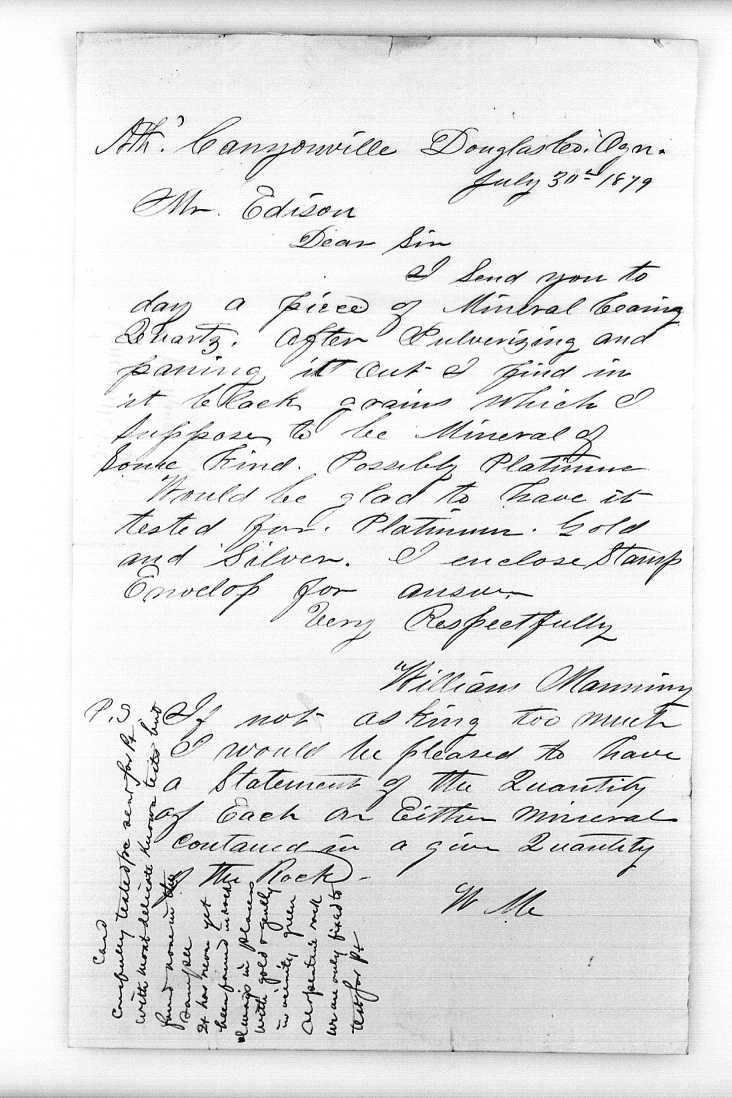 Canyonville Douglas Co. Ogn.
July 30th 1879
Mr. Edison
Dear Sir
I Send you to
day a piece of Mineral bearing
Quartz. After Pulverizing and
paning it out I find in
it black grains which I
suppose to be Mineral of
Some Kind. Possibly Platinum
Would be glad to have it
tested for. Platinum. Gold
and Silver. I enclose Stamp
Envelop for answer
Very Respectfully
William Manning
P.S If not asking too much
I would be pleased to have
a Statement of the Quantity
of Each or Either mineral
contained in a given Quantity
of the Rock.
W M
Card
Carefully tested pc sent for Pt
with most delicate known tests but
found none in the
sample
It has never yet
been found in rock
always in placers
with gold & gnly
in vicinity green
serpentine rock
we are only fixed to
test for Pt